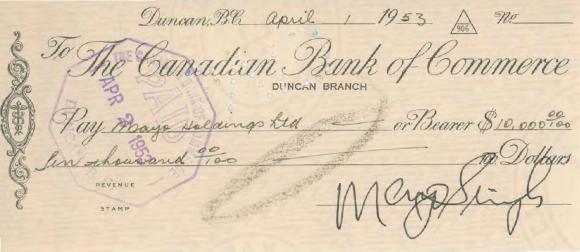 Duncan, B.C. April 1 1953 906 No
To The Canadian Bank of Commerce
DUNCAN BRANCH
Pay Mayo Holdings Ltd or Bearer $10,000 00/100
Ten thousand 00/100 Dollars
REVENUE
STAMP
Mayo Singh
THE C
PAID
APR 2 1953